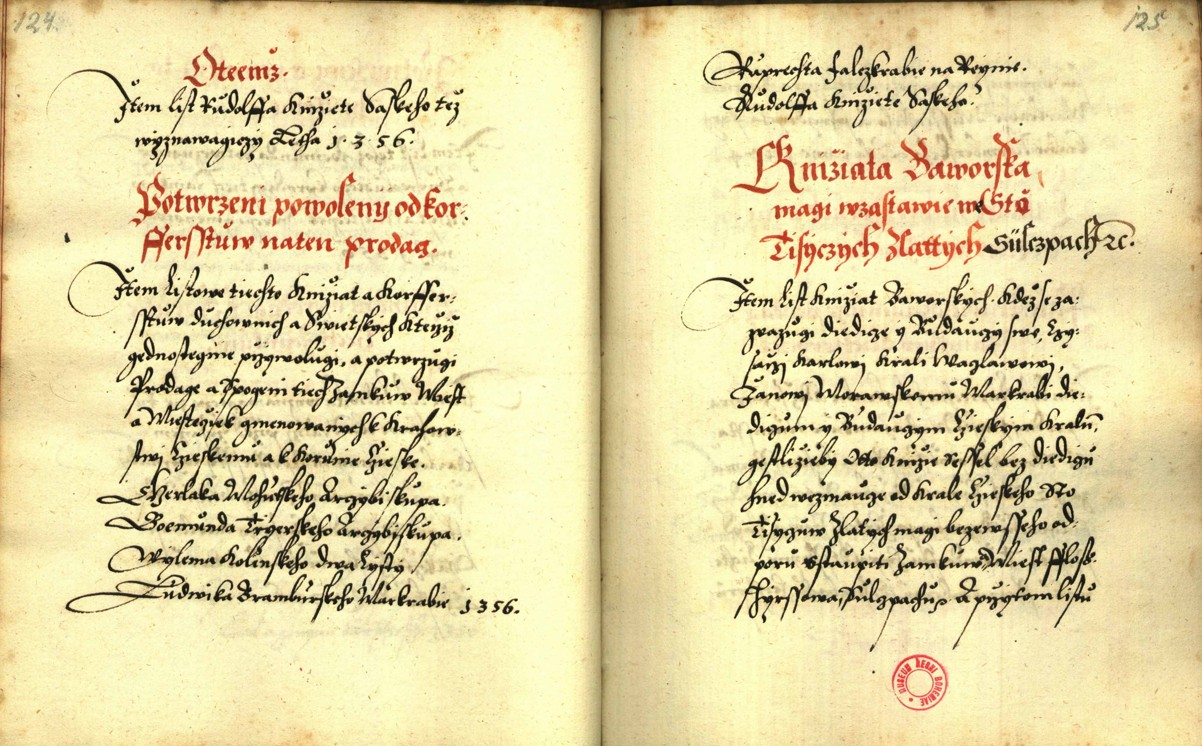 124.
Oteemz.
Item list Rudolffa Knižiete Saskeho též
wyznawagiczy Letha 1.3.56.
Potwrzeni powoleny od kor-
ffersstůw naten prodag.
Item Listowe tiechto Knižiat a Korffer-
sstuw duchownich a Swietskych Kterziz
gednostegnie przywolugi, a potwrzugi
Prodage a Spogeni tiech Zamkuw Miest
a Miesteczek gmenowanych k Kralow-
stwi Czieskemu a k Korunie Czieske.
Gerlaka Mohutskeho Arczybiskupa.
Boemunda Trzerskeho Arczybiskupa.
Wylema Kolinskeho dwa Lysty
Ludwika Bramburskeho Markrabie 1356.
125
Ruprechta Falczkrabie na Reynie.
Rudolffa Knižiete Saskeho.
Knižiata Baworska
magi wzastawie we Sto
Tisyczych Zlattych Sülczpach ꝛc.
Item List Knižiat Baworskych. Kdež se za-
wazugi diedicze y Budauczy swe, Czy-
sarzi Karlowi Krali Waglawowi,
Janowi Morawskemu Markrabi die-
diczum y Budauczym Czieskym Kralum,
gestližieby Otto Knížie Sessel bez diediczu
hned wezmaucze od Krale Czieskeho Sto
Tisyczuw Zlatych magi bezewsseho od-
poru Vstaupiti Zamkuw, Miest Ffloss-
Hyrssowa, Sulczpachu A przytom listu
MUSEUM REGNI BOHEMIAE